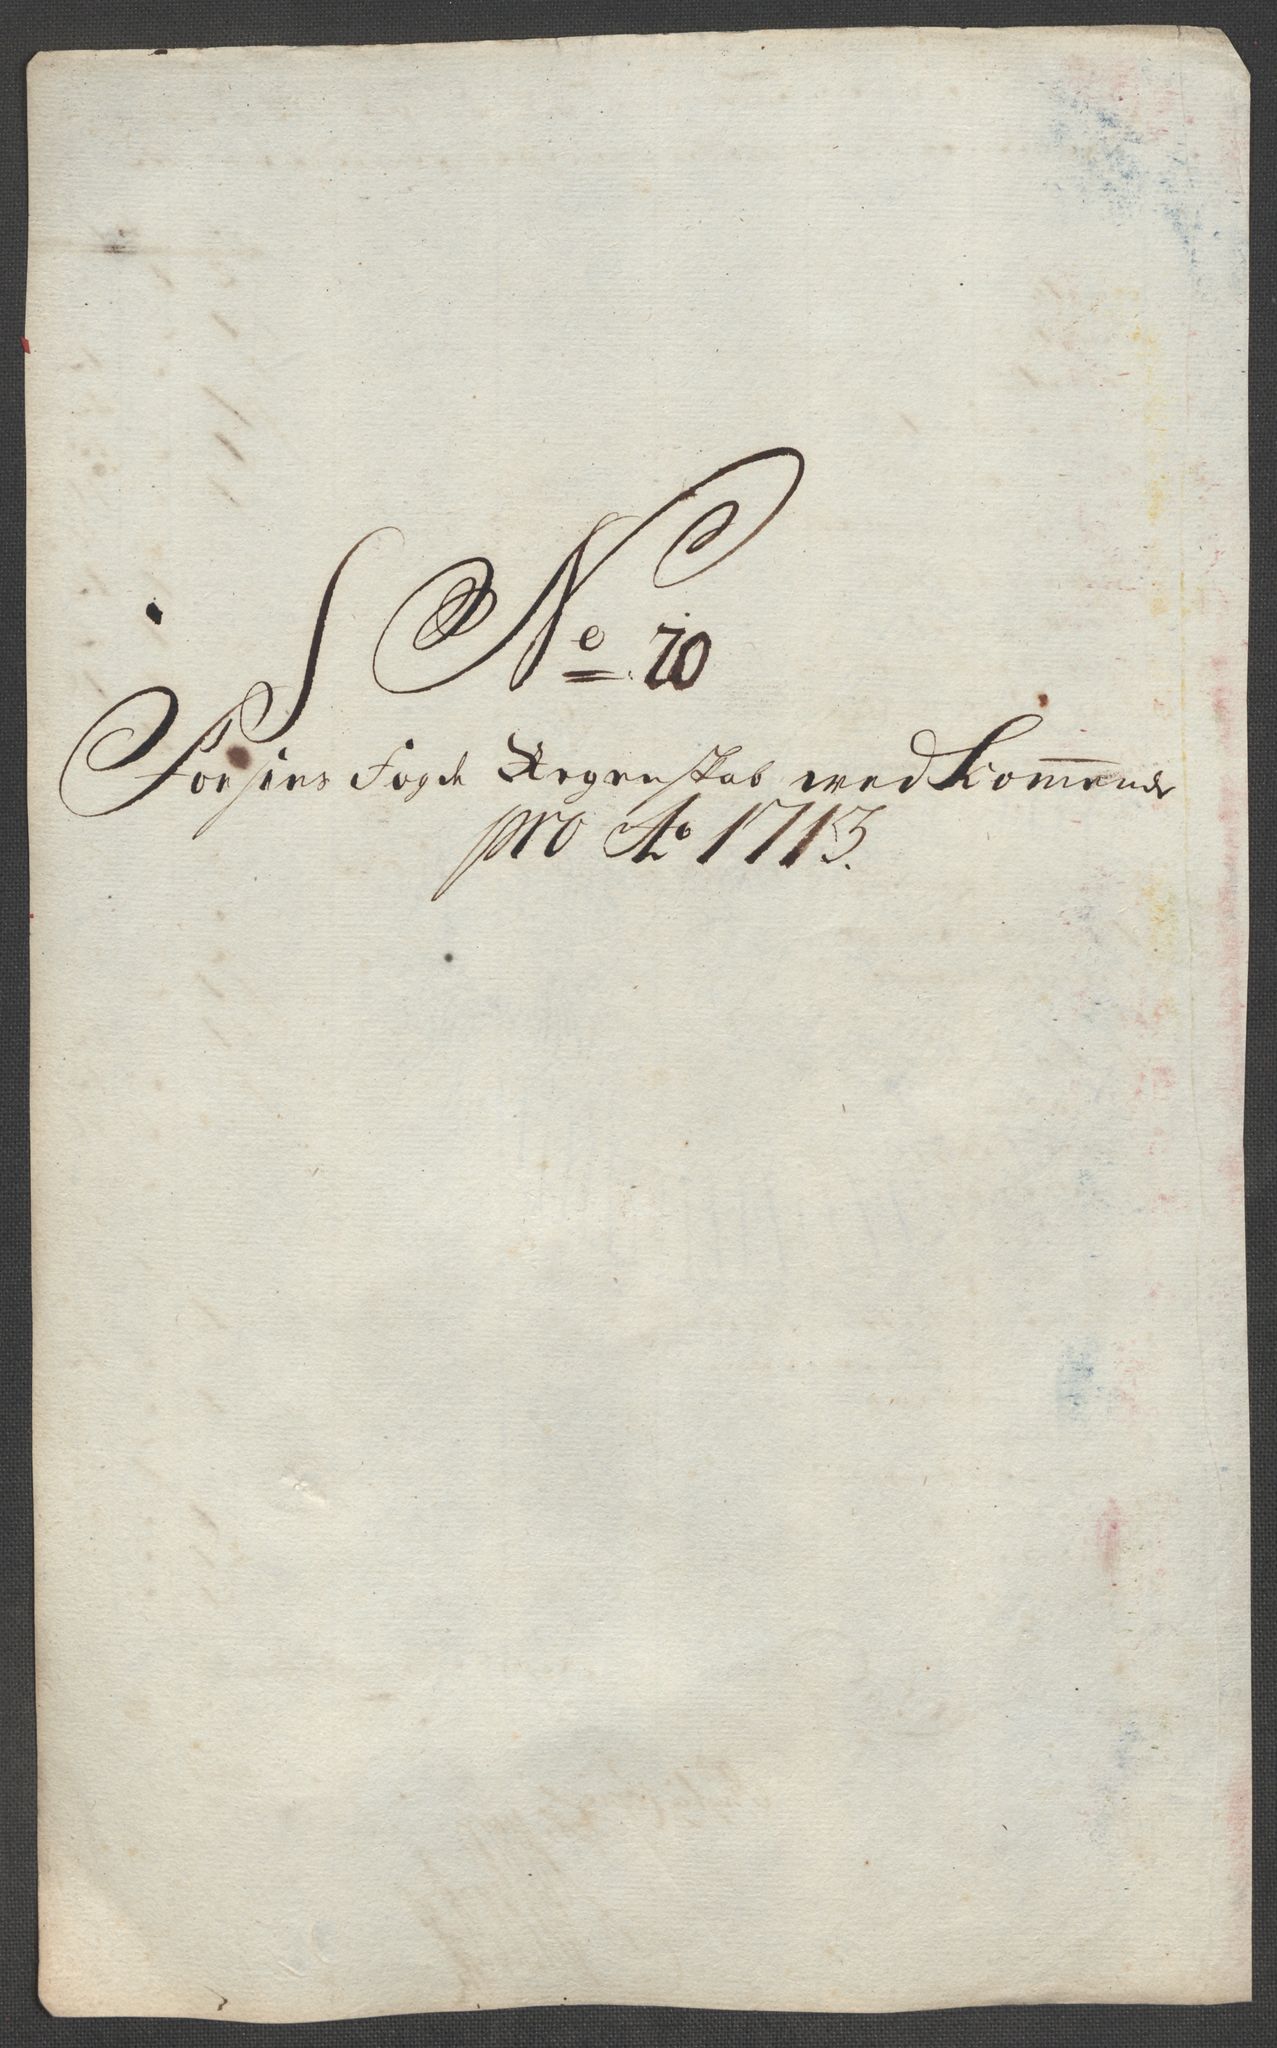 No 20
Fosens Fogde Regenskab wedkom̅ende
pro Ao 1713.